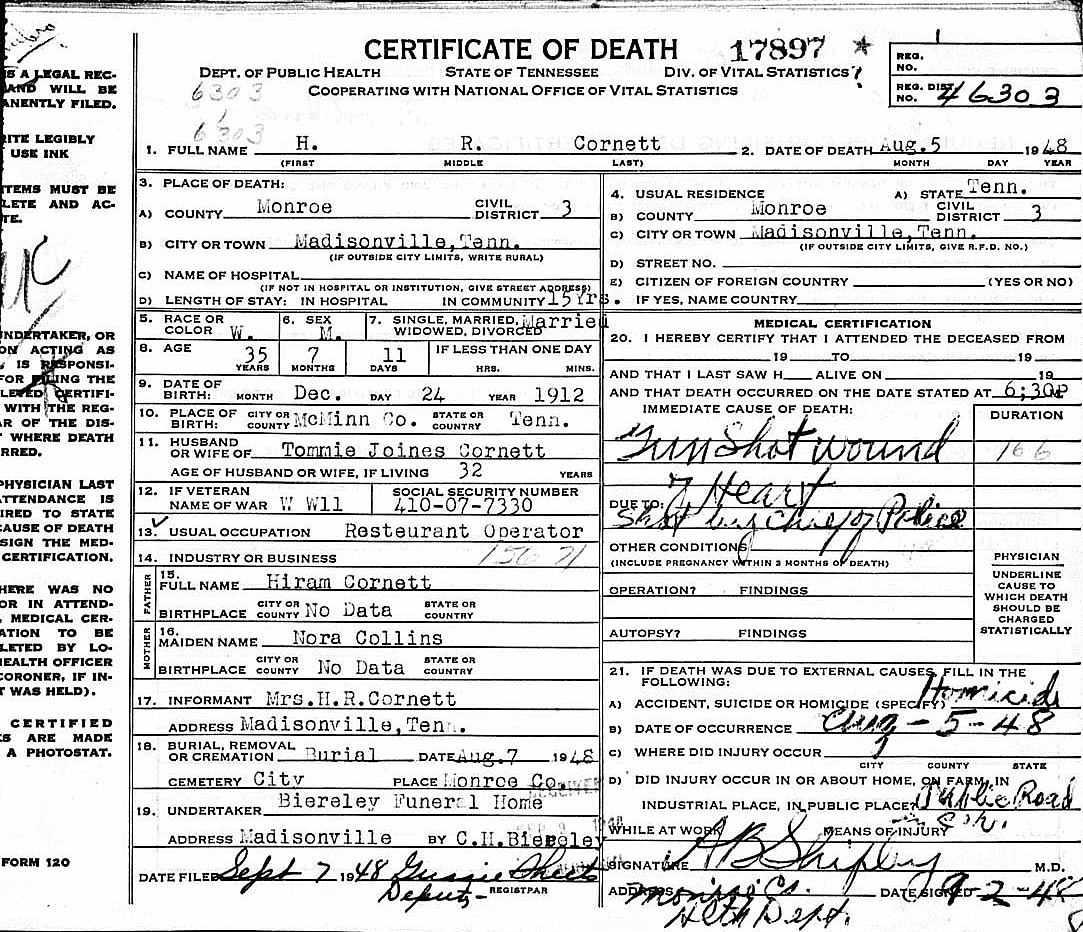 S A LEGAL REC-
AND WILL BE
ANENTLY FILED.
RITE LEGIBLY
USE INK
TEMS MUST BE
LETE AND AC-
TE.
UNDERTAKER, OR
ON ACTING AS
, IS RESPONSI-
FOR FILING THE
LETED CERTIFI-
WITH THE REG-
AR OF THE DIS-
T WHERE DEATH
RRED.
PHYSICIAN LAST
ATTENDANCE IS
IRED TO STATE
CAUSE OF DEATH
SIGN THE MED-
CERTIFICATION.
HERE WAS NO
OR IN ATTEND-
, MEDICAL CER-
ATION TO BE
LETED BY LO-
HEALTH OFFICER
CORONER, IF IN-
T WAS HELD).
CERTIFIED
S ARE MADE
A PHOTOSTAT.
FORM 120
CERTIFICATE OF DEATH 17897 *
DEPT. OF PUBLIC HEALTH STATE OF TENNESSEE DIV. OF VITAL STATISTICS
COOPERATING WITH NATIONAL OFFICE OF VITAL STATISTICS
6303
6303
REG. NO.
REG. DIST. NO. 46303
1. FULL NAME H. R. Cornett 2. DATE OF DEATH Aug. 5 1948
(FIRST) MIDDLE LAST) MONTH DAY YEAR
3. PLACE OF DEATH:
A) COUNTY Monroe CIVIL DISTRICT 3
B) CITY OR TOWN Madisonville,Tenn.
(IF OUTSIDE CITY LIMITS, WRITE RURAL)
C) NAME OF HOSPITAL
(IF NOT IN HOSPITAL OR INSTITUTION, GIVE STREET ADDRESS)
D) LENGTH OF STAY: IN HOSPITAL IN COMMUNITY 15Yrs.
4. USUAL RESIDENCE A) STATE Tenn.
B) COUNTY Monroe CIVIL DISTRICT 3
C) CITY OR TOWN Madisonville,Tenn.
(IF OUTSIDE CITY LIMITS, GIVE R.F.D. NO.)
D) STREET NO.
E) CITIZEN OF FOREIGN COUNTRY (YES OR NO)
IF YES, NAME COUNTRY
5. RACE OR COLOR W. 6. SEX M. 7. SINGLE, MARRIED, WIDOWED, DIVORCED Married
8. AGE 35 YEARS 7 MONTHS 11 DAYS IF LESS THAN ONE DAY HRS. MINS.
9. DATE OF BIRTH: MONTH Dec. DAY 24 YEAR 1912
10. PLACE OF BIRTH: CITY OR COUNTY McMinn Co. STATE OR COUNTRY Tenn.
11. HUSBAND OR WIFE OF Tommie Joines Cornett
AGE OF HUSBAND OR WIFE, IF LIVING 32 YEARS
12. IF VETERAN NAME OF WAR W Wll SOCIAL SECURITY NUMBER 410-07-7330
13. USUAL OCCUPATION Resteurant Operator
14. INDUSTRY OR BUSINESS 156 71
FATHER 15. FULL NAME Hiram Cornett
BIRTHPLACE CITY OR COUNTY No Data STATE OR COUNTRY
MOTHER 16. MAIDEN NAME Nora Collins
BIRTHPLACE CITY OR COUNTY No Data STATE OR COUNTRY
17. INFORMANT Mrs.H.R.Cornett
ADDRESS Madisonville,Tenn.
18. BURIAL, REMOVAL OR CREMATION Burial DATE Aug.7 1948
CEMETERY City PLACE Monroe Co.
19. UNDERTAKER Biereley Funeral Home
ADDRESS Madisonville BY C.H.Biereley
DATE FILED Sept 7 1948
Deputy- REGISTRAR
MEDICAL CERTIFICATION
20. I HEREBY CERTIFY THAT I ATTENDED THE DECEASED FROM
19 TO 19
AND THAT I LAST SAW H ALIVE ON 19
AND THAT DEATH OCCURRED ON THE DATE STATED AT 6;30P
IMMEDIATE CAUSE OF DEATH: DURATION
Gun Shot wound 166
of Heart
DUE TO: Shot by Chief of Police
OTHER CONDITIONS
(INCLUDE PREGNANCY WITHIN 3 MONTHS OF DEATH)
OPERATION? FINDINGS
AUTOPSY? FINDINGS
PHYSICIAN
UNDERLINE
CAUSE TO
WHICH DEATH
SHOULD BE
CHARGED
STATISTICALLY
21. IF DEATH WAS DUE TO EXTERNAL CAUSES, FILL IN THE
FOLLOWING:
A) ACCIDENT, SUICIDE OR HOMICIDE (SPECIFY) Homicide
B) DATE OF OCCURRENCE Aug-5-48
C) WHERE DID INJURY OCCUR
CITY COUNTY STATE
D) DID INJURY OCCUR IN OR ABOUT HOME, ON FARM, IN
INDUSTRIAL PLACE, IN PUBLIC PLACE? Public Road
WHILE AT WORK MEANS OF INJURY
SIGNATURE A B Shipley M.D.
ADDRESS Monroe Co. DATE SIGNED 9-2-48
Hlth Dept.